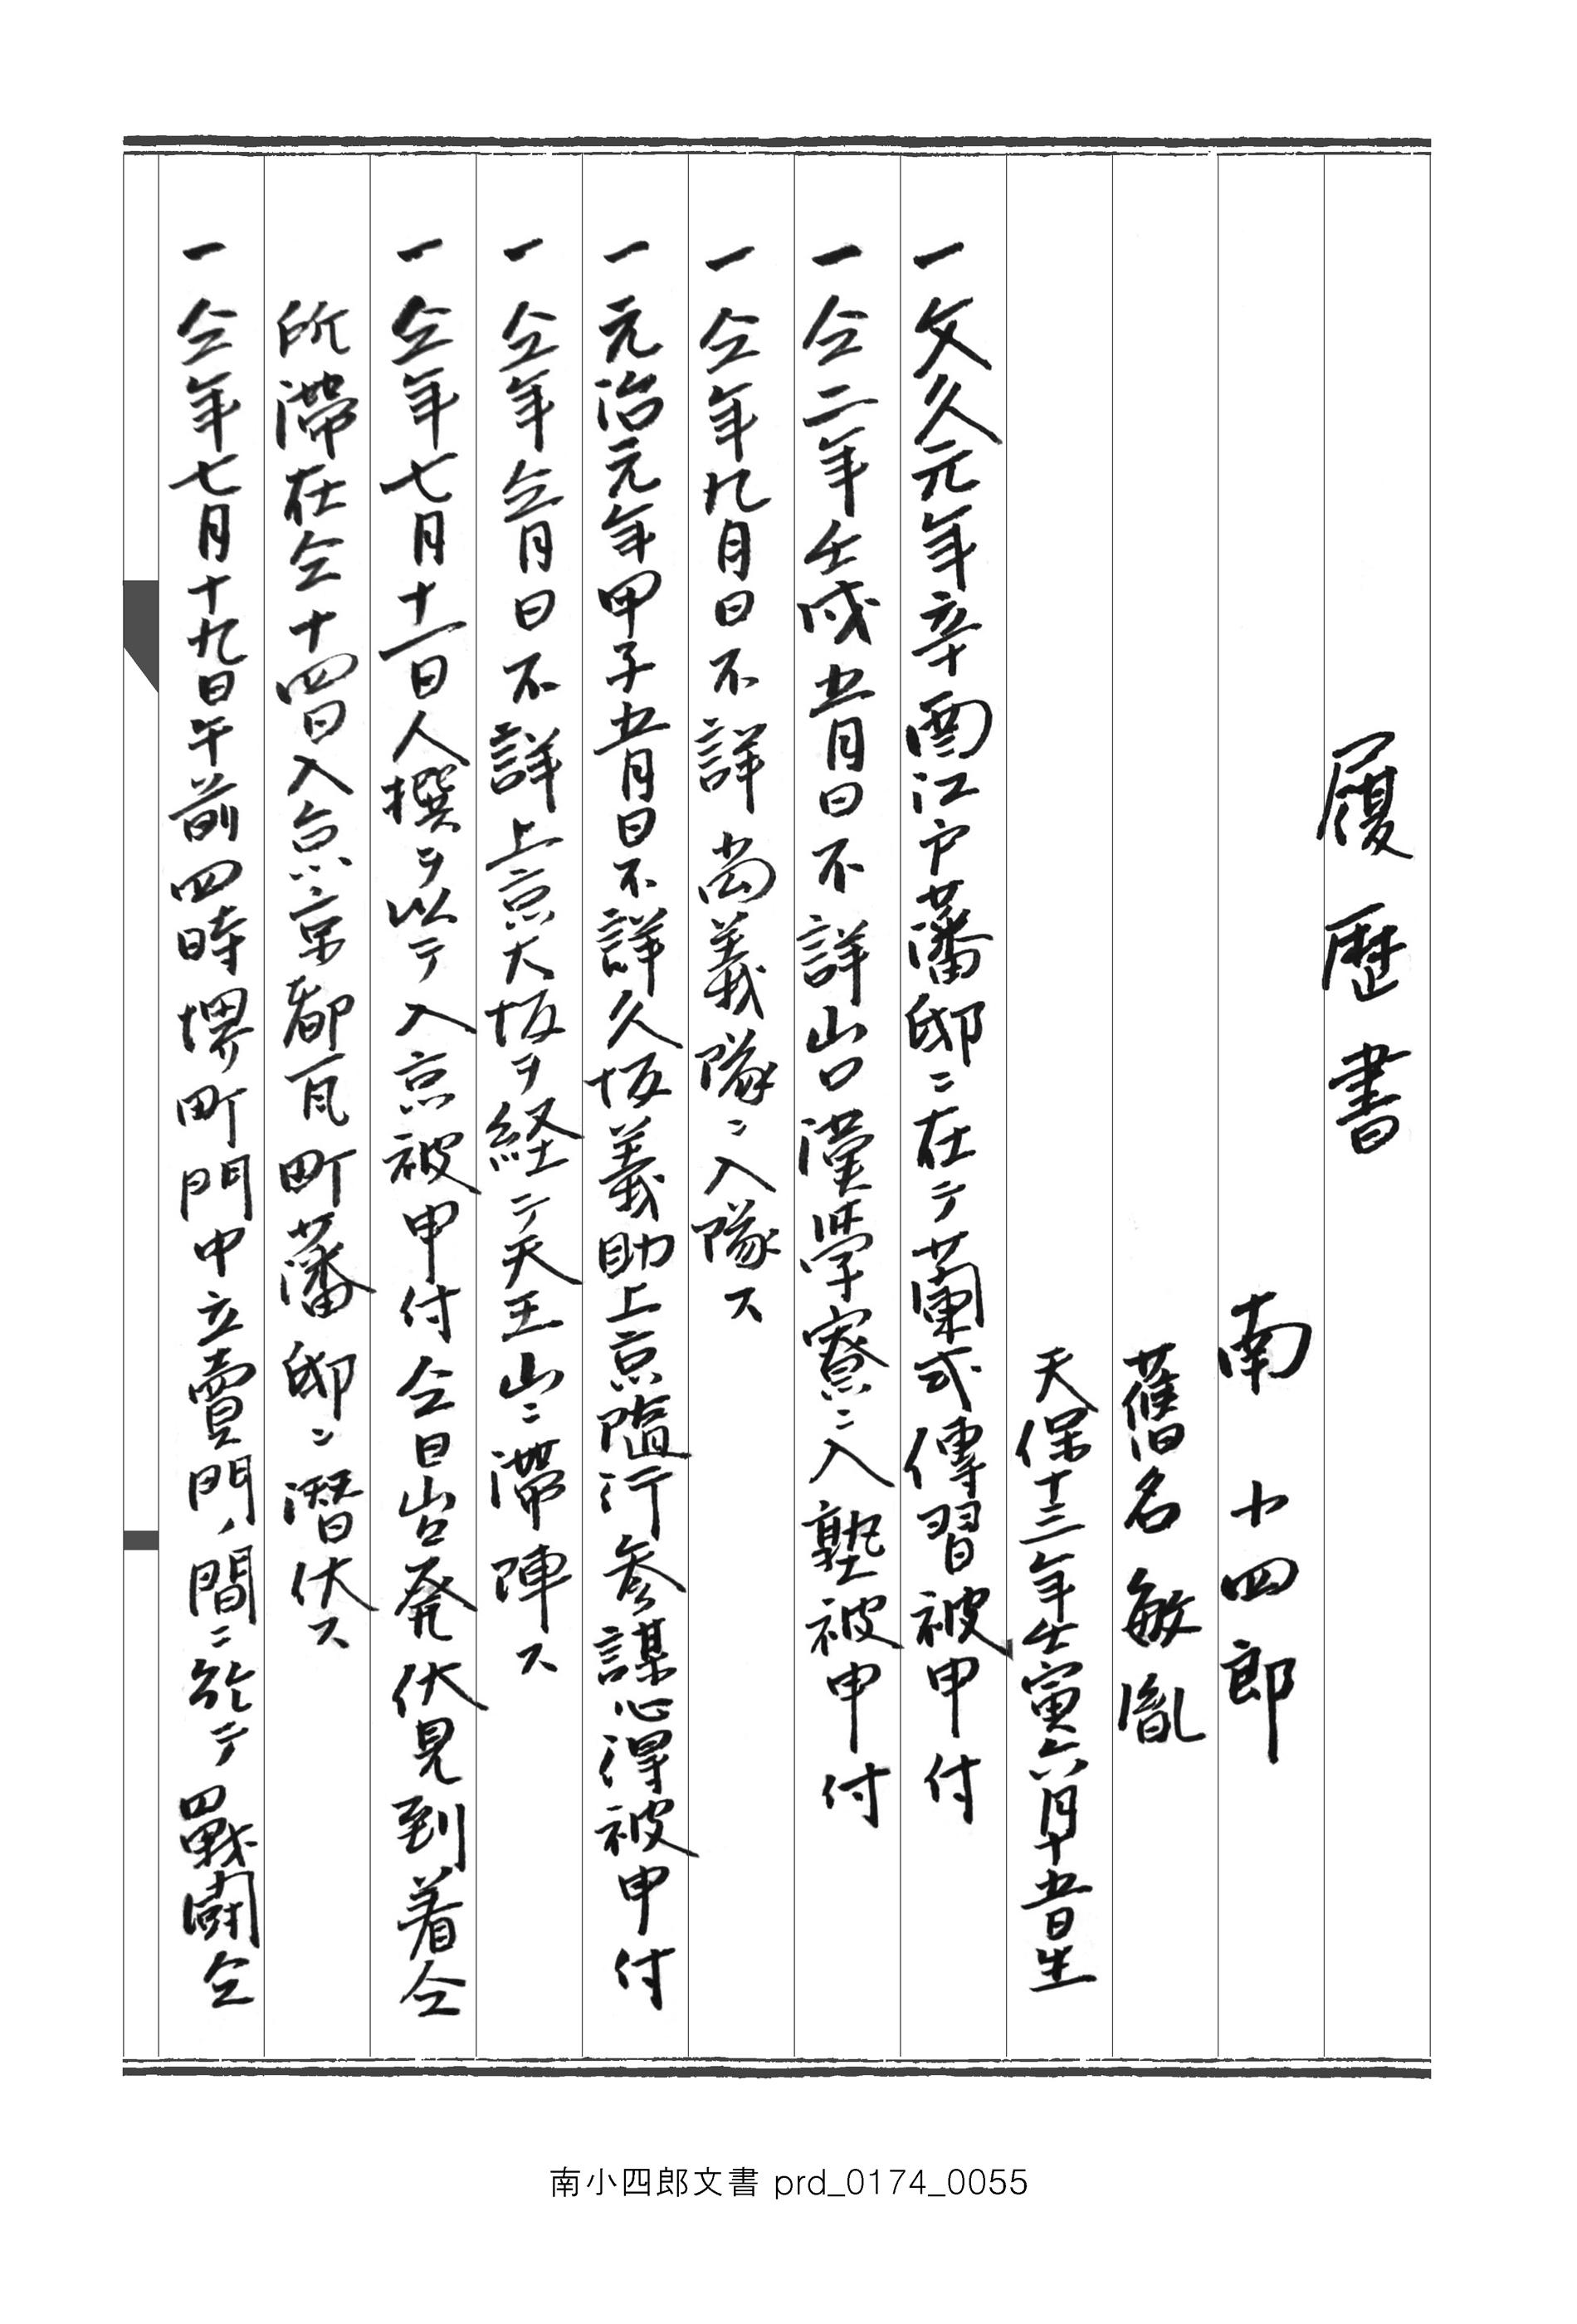 履歴書
南小四郎
舊名敏胤
天保十三年壬寅六月十五日生
一文久元年辛酉江戸藩邸ニ在テ蘭式傳習被申付
一仝二年壬戌五月日不詳山口漢学寮ニ入塾被申付
一仝年九月日不詳尚義隊ニ入隊ス
一元治元年甲子五月日不詳久坂義助上京随行参謀心得被申付
一仝年仝月日不詳上京大坂ヲ経テ天王山ニ滞陣ス
一仝年七月十一日人撰ヲ以テ入京被申付仝日出発伏見到着仝
所滞在仝十四日入京京都瓦町藩邸ニ潜伏ス
一仝年七月十九日午前四時堺町門中立賣門ノ間ニ於テ戰闘仝
南小四郎文書 prd_0174_0055